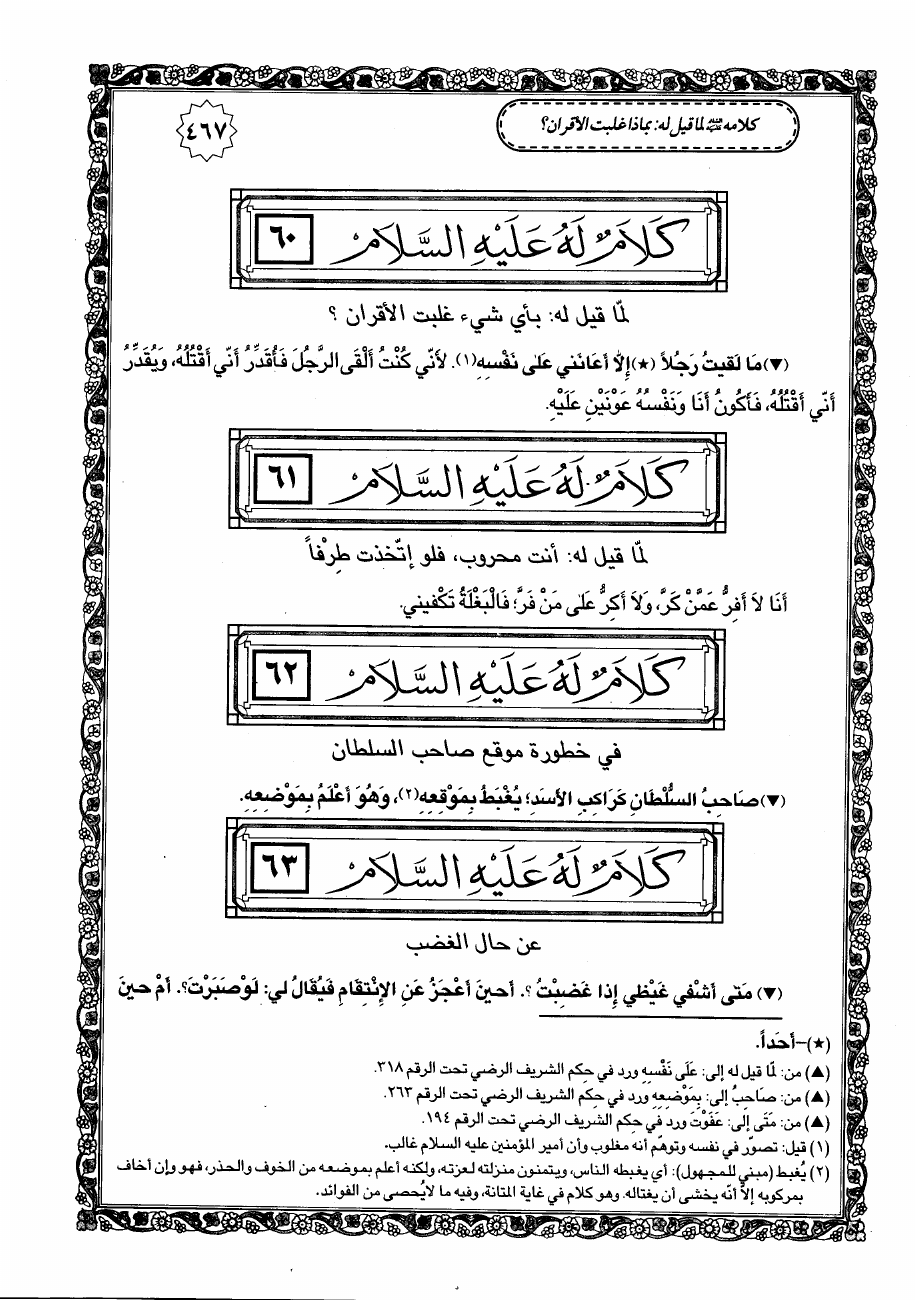 كلامه عليه السلام لما قيل له: بماذا غلبت الأقران؟
٤٦٧
كَلَامٌ لَهُ عَلَيْهِ السَّلَامُ
٦٠
لمّا قيل له: بأي شيء غلبت الأقران ؟
(▼) مَا لَقيتُ رَجُلاً (★) إِلاَّ أَعَانَني عَلى نَفْسِهِ(١). لأَنّي كُنْتُ أَلْقَى الرَّجُلَ فَأُقَدِّرُ أَنّي أَقْتُلُهُ، وَيُقَدِّرُ
أَنّي أَقْتُلُهُ، فَأَكُونُ أَنَا وَنَفْسُهُ عَوْنَيْنِ عَلَيْهِ.
كَلَامٌ لَهُ عَلَيْهِ السَّلَامُ
٦١
لمّا قيل له: أنت محروب، فلو إتّخذت طِرْفاً
أَنَا لاَ أَفِرُّ عَمَّنْ كَرَّ، وَلاَ أَكِرُّ عَلى مَنْ فَرَّ؛ فَالْبَغْلَةُ تَكْفيني.
كَلَامٌ لَهُ عَلَيْهِ السَّلَامُ
٦٢
في خطورة موقع صاحب السلطان
(▼) صَاحِبُ السُّلْطَانِ كَرَاكِبِ الأَسَدِ؛ يُغْبَطُ بِمَوْقِعِهِ(٢)، وَهُوَ أَعْلَمُ بِمَوْضِعِهِ.
كَلَامٌ لَهُ عَلَيْهِ السَّلَامُ
٦٣
عن حال الغضب
(▼) مَتى أَشْفي غَيْظي إِذا غَضِبْتُ ؟. أَحينَ أَعْجَزُ عَنِ الإِنْتِقَامِ فَيُقَالُ لي: لَوْ صَبَرْتَ؟. أَمْ حينَ
(★)–أَحَداً.
(▲) من: لمّا قيل له إلى: عَلَى نَفْسِهِ ورد في حكم الشريف الرضي تحت الرقم ٣١٨.
(▲) من: صَاحِبُ إلى: بِمَوْضِعِهِ ورد في حِكم الشريف الرضي تحت الرقم ٢٦٣.
(▲) من: مَتَى إلى: عَفَوْتَ ورد في حكم الشريف الرضي تحت الرقم ١٩٤.
(١) قيل: تصوّر في نفسه وتوهّم أنه مغلوب وأن أمير المؤمنين عليه السلام غالب.
(٢) يُغبط (مبني للمجهول): أي يغبطه الناس، ويتمنون منزلته لعزته، ولكنه أعلم بموضعه من الخوف والحذر، فهو وإن أخاف
بمركوبه إلاّ أنّه يخشى أن يغتاله. وهو كلام في غاية المتانة، وفيه ما لا يُحصى من الفوائد.